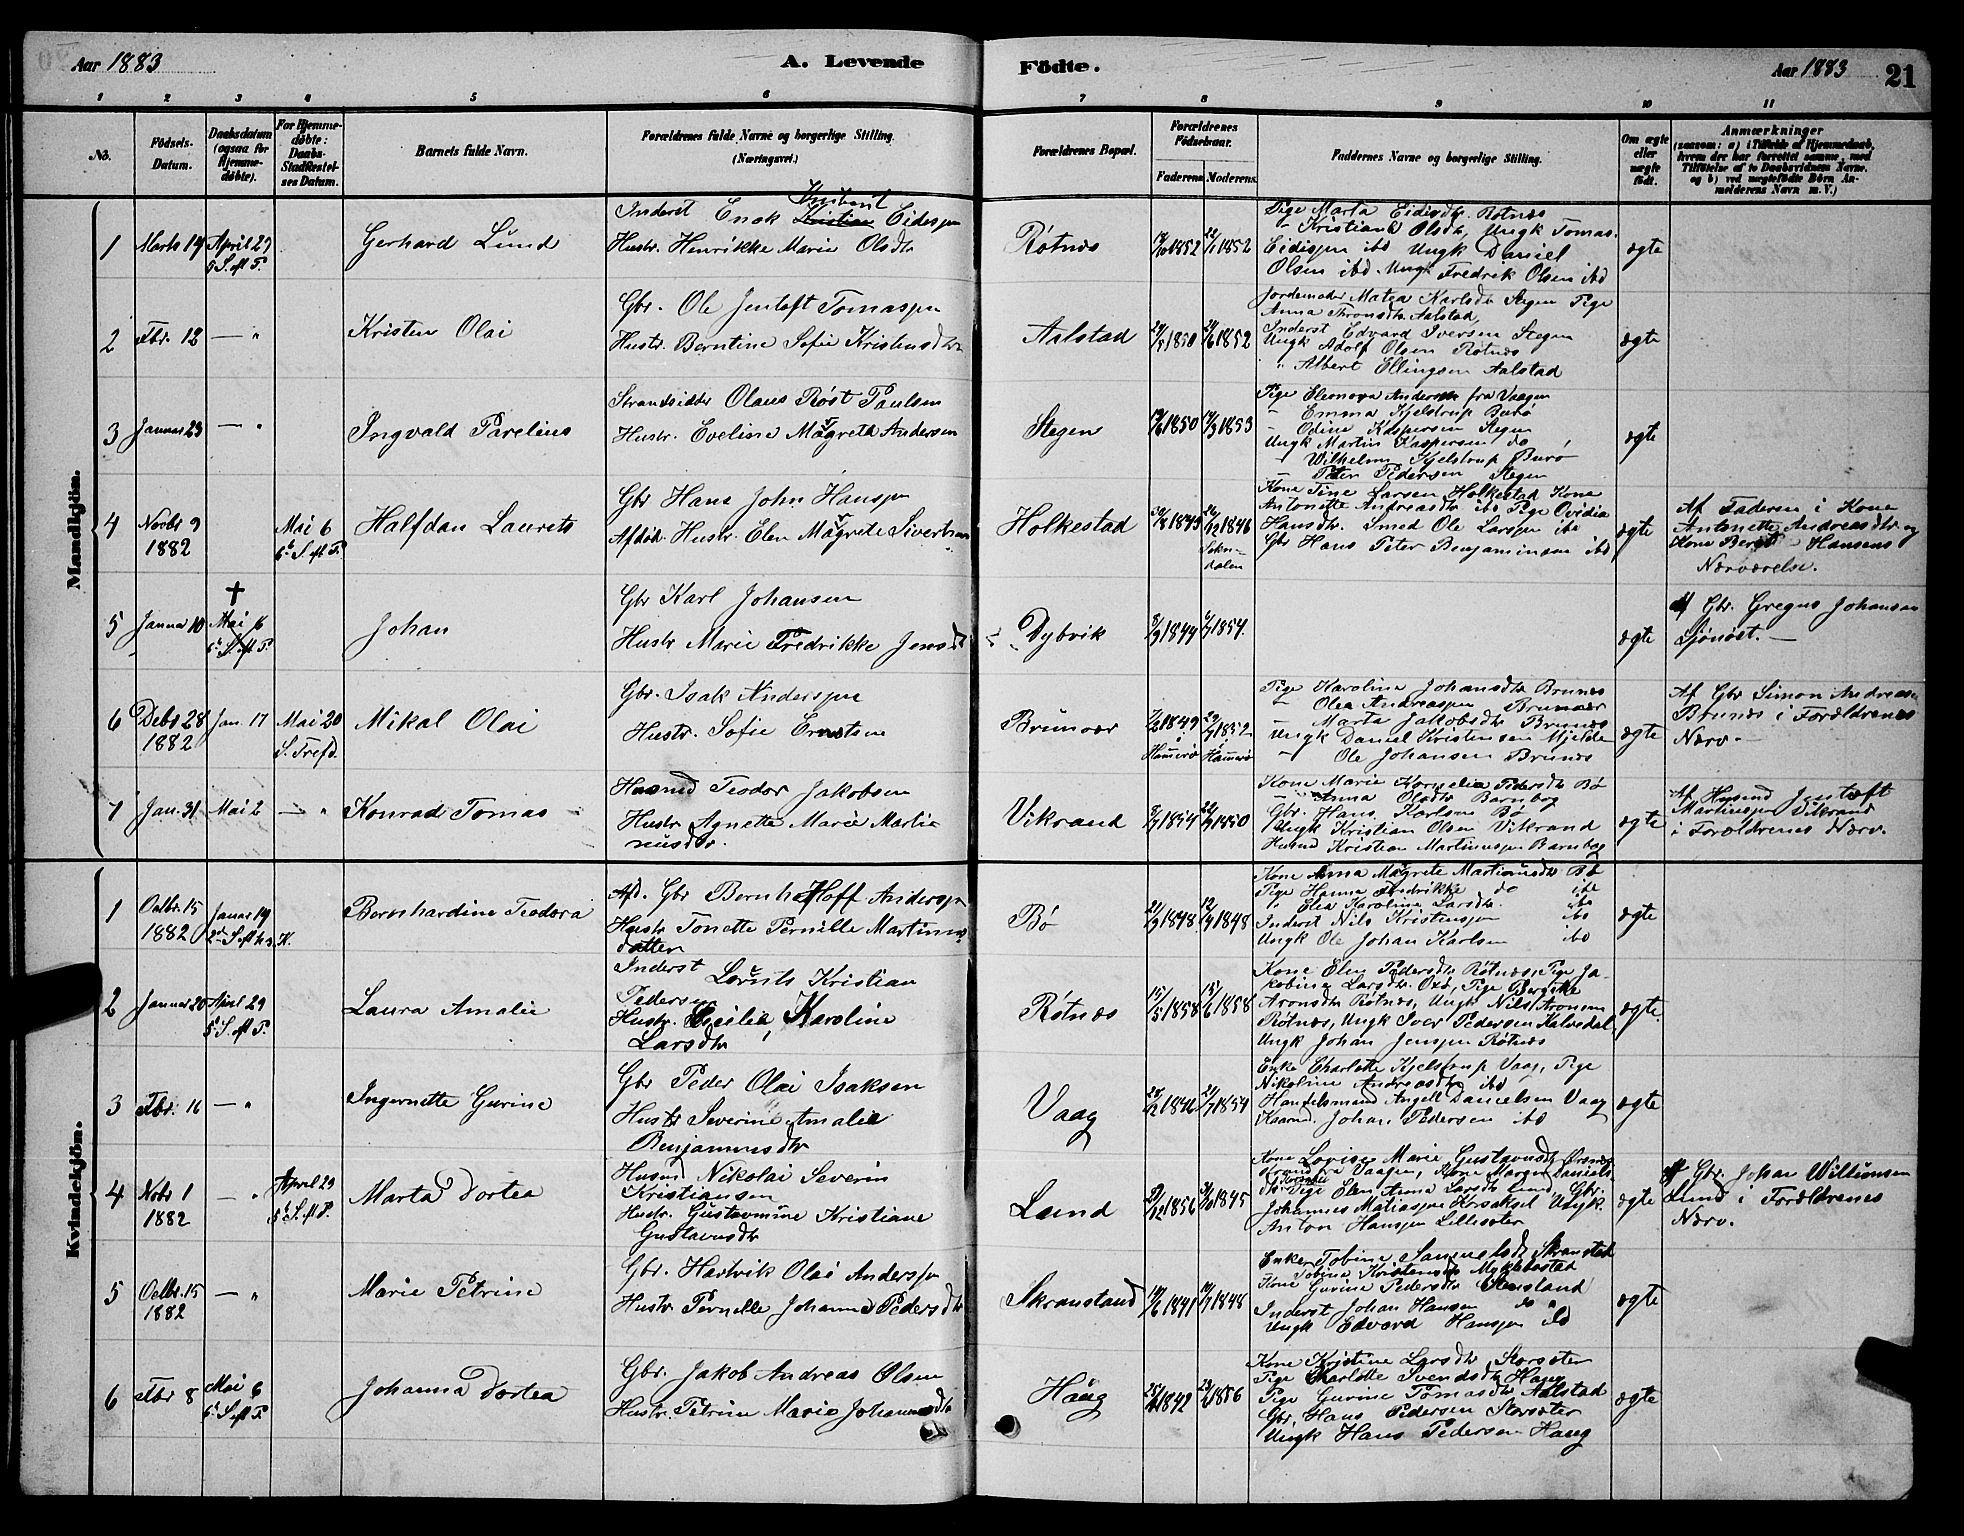 Aar 1883
A. Levende
Födte.
Aar 1883
21
1 2 3 4 5 6 7 8 9 10 11
No.
Födsels-
Datum.
Daabsdatum
(ogsaa for
Hjemme-
døbte).
For Hjemme-
døbte:
Daabs-
Stadfæstel-
ses Datum.
Barnets fulde Navn.
Forældrenes fulde Navne og borgerlige Stilling.
(Næringsvei.)
Forældrenes Bopæl.
Forældrenes
Födselsaar.
Faderens Moderens
Faddernes Navne og borgerlige Stilling.
Om ægte
eller
uægte
født.
Anmærkninger
(saasom: a) i Tilfælde af Hjemmedaab,
hvem der har forrettet samme, med
Tilföielse af to Daabsvidners Navne,
og b) ved uægtefödte Börn An-
melderens Navn m. V.)
Mandkjön.
1
Marts 14
April 29
5 S. eft P.
Gerhard Lund
Inderst Enok Kristian Eidespn
Hustr. Henrikke Marie Olsdtr
Røtnæs
1852
1852
Pige Marta Eidesdtr. Røtnæs
- Kristiane Olsdtr, Ungk Tomas
Eidespn ibd Ungk Daniel
Olsen ibd. Ungk Fredrik Olsen ibd
ægte
2
Fbr. 12
— "
Kristen Olai
Gbr. Ole Jentoft Tomaspn
Hustr. Berntine Sofie Kristensdtr
Aalstad
1850
1852
Jordemoder Matea Karlsdtr Stegen Pige
Anna Aronsdtr Aalstad,
Inderst Edvard Iversen Stegen
Ungk Adolf Olsen Røtnæs
" Albert Ellingsen Aalstad
ægte
3
Januar 23
— "
Ingvald Parelius
Strandsidder Olaus Røst Paulsen
Hustr. Eveline Magreta Andersen
Stegen
1850
1853
Pige Eleonora Andersen fra Vaagen
- Emma Kjelstrup Burø
- Odine Kaspersen Stegen
Ungk Martin Kaspersen do
- Wilhelm Kjelstrup Burø
- Peter Pedersen Stegen
ægte
4
Novbr 9
1882
Mai 6
6te S. eft P.
Halfdan Laurits
Gbr Hans John Hanspn
Afdøde Hustr. Elen Magrete Sivertsen
Holkestad
1843
1846
Kone Tine Larsen Holkestad Kone
Antonette Andreasdtr ibd Pige Ovidia
Hansdtr. Smed Ole Larspn ibd
Gbr Hans Peter Benjaminsen ibd
ægte
Af Faderen i Kone
Antonette Andreasdtr og
Kone Berit Hansens
Nærværelse.
5
Januar 10
†
Mai 6
6te S. eft P.
Johan
Gbr Karl Johansen
Hustr Marie Fredrikke Jensdtr
Dybvik
1844
1854.
ægte
Af Gbr. Gregus Johansen
Sjönöst. —
6
Debr 28
1882
Jan. 17
Mai 20
S. Trefd.
Mikal Olai
Gbr. Isak Anderspn
Hustr. Sofie Ernstsen
Brunvær
1849
Hamerø
1852
Hamerø
Pige Karolina Johansdtr Brunæs
- Olea Andreaspn Brunvær
- Marta Jakobsdtr Brunæs
Ungk Daniel Kristensen Mjelde
- Ole Johansen Brunæs
ægte
Af Gbr Simon Andreasen
Brunæs i Forældrenes
Nærv. —
7
Jan. 31
Mai 2
— "
Konrad Tomas
Husmd Teodor Jakobsen
Hustr. Agnette Marie Marti-
nusdtr.
Vikrand
1854
1850
Kone Marie Kornelia Pedersdtr Bø
- Anna Olsdtr Barnbog
Gbr. Hans Karlsen Bø
Ungk Kristian Olsen Vikrand
Husmd Kristian Martinuspn Barnbog
ægte
Af Husmd Jentoft
Martinuspn Vikrand
i Forældrenes Nærv.
Kvindekjön.
1
Octbr. 15
1882
Januar 14
2den S. eft h. 3 K.
Bernhardine Teodora
Afd. Gbr Bernh Hoff Anderspn
Hustr Tonette Pernille Martinus-
datter
Bø
1848
1848
Kone Anna Magrete Martinusdtr Bø
Pige Hanna Fredrikke do ibd
" Elea Karoline Larsdtr. ibd
Inderst Nils Kristenspn ibd
Ungk Ole Johan Karlsen ibd
ægte
2
Januar 20
April 29
5te S. eft P.
Laura Amalie
Inderst Lorents Kristian
Pedersen
Hustr. Cecilia Karoline
Larsdtr
Røtnæs
15/5 1858
15/6 1858
Kone Elen Pedersdtr Røtnæs, Pige Ja-
kobine Larsdtr. Oxø, Pige Bergitte
Aronsdtr Røtnæs, Ungk Nils Aronsen
Røtnæs, Ungk Iver Pedersen Kalvedal
Ungk Johan Jenspn Røtnæs
ægte.
3
Fbr. 16
— "
Ingernette Gurine
Gbr Peder Olai Isaksen
Hustr Severine Amalia
Benjaminsdtr
Vaag
1846
1854
Enke Charlotte Kjelstrup Vaag, Pige
Nikoline Andreasdtr ibd
Handelsmand Angell Danielsen Vaag
Kaarmd. Johan Pedersen ibd
ægte
4
Nobr 1
1882
— "
April 29
5te S. eft P.
Marta Dortea
Husmd Nikolai Severin
Kristiansen
Hustr. Gustavmine Kristiane
Gustavusdtr
Lund
1856
1845
Kone Lovise Marie Gustavusdtr Ørsnæs
Strand fra Vaagen, Kone Maren Daniels-
dtr Pige Elen Anna Larsdtr Lund, Gbr.
Johannes Matiaspn Korsaksel Ungk.
Anton Hanspn Lillesæter
ægte
Af Gbr. Johan Williumsen
Lund i Forældrenes
Nærv.
5
Octbr. 15
1882
— "
Marie Petrine
Gbr. Hartvik Olai Anderspn
Hustr. Pernille Johanna Pedersdtr
Skranstad
1841
1848
Enke Tobine Samuelsdtr Skranstad
- Tobine Kristensdtr Myklebostad
Kone Gurine Pedersdtr
Inderst Johan Hansen do
Ungk Edvard Hanspn ibd
ægte
6
Fbr 8
Mai 6
6te S. eft P.
Johanna Dortea
Gbr. Jakob Andreas Olsen
Hustr. Petrine Marie Johannesdtr
Haug
1842
1856
Kone Kristine Larsdtr Storsæter
Pige Charlotte Svendsdtr Haug
Pige Gurine Tomasdtr Aalstad
Gbr. Hans Pedersen Storsæter
Ungk Hans Pedersen Haug
ægte